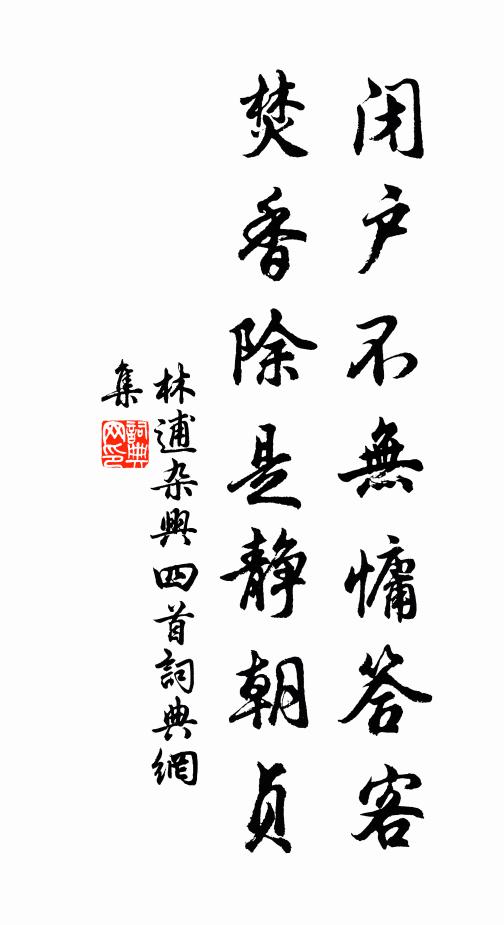 闭户不無慵答客
焚香除是静朝贞
林逋杂興四首詞典網
集
詞典
网印